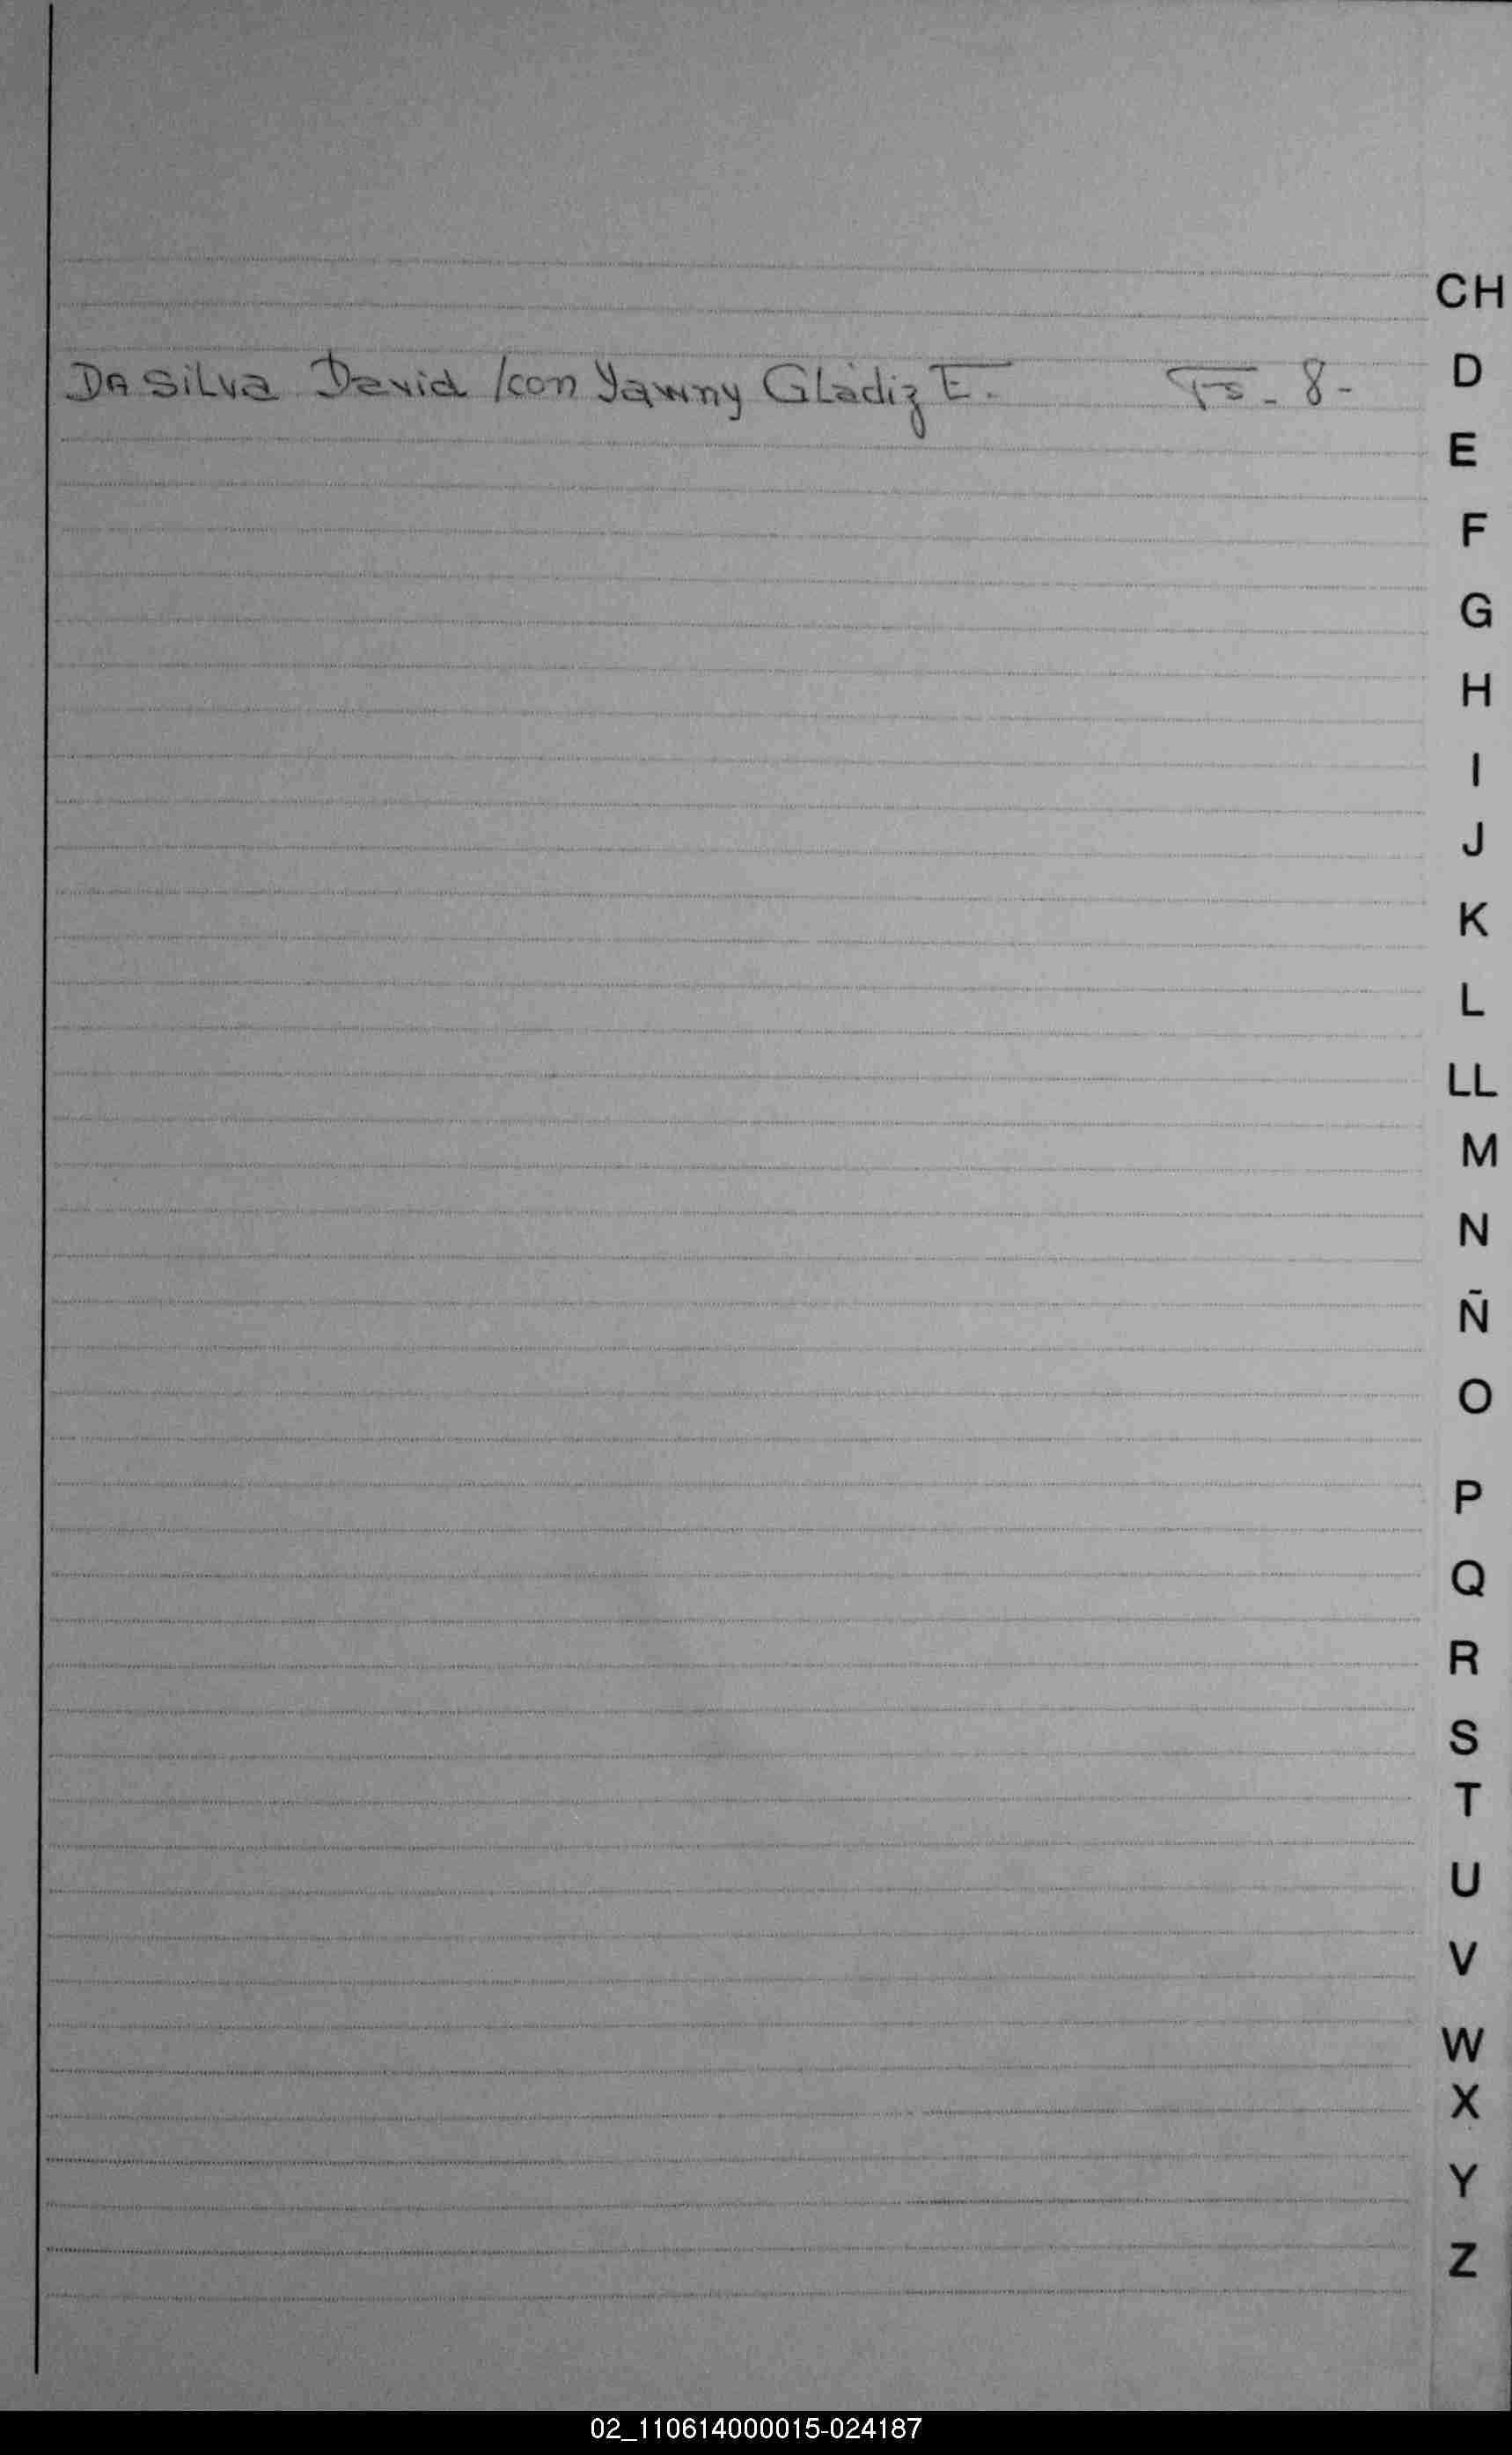 DA SiLva David /con Yawny Gladiz E. Fo - 8 -
CH
D
E
F
G
H
I
J
K
L
LL
M
N
Ñ
O
P
Q
R
S
T
U
V
W
X
Y
Z
02_110614000015-024187